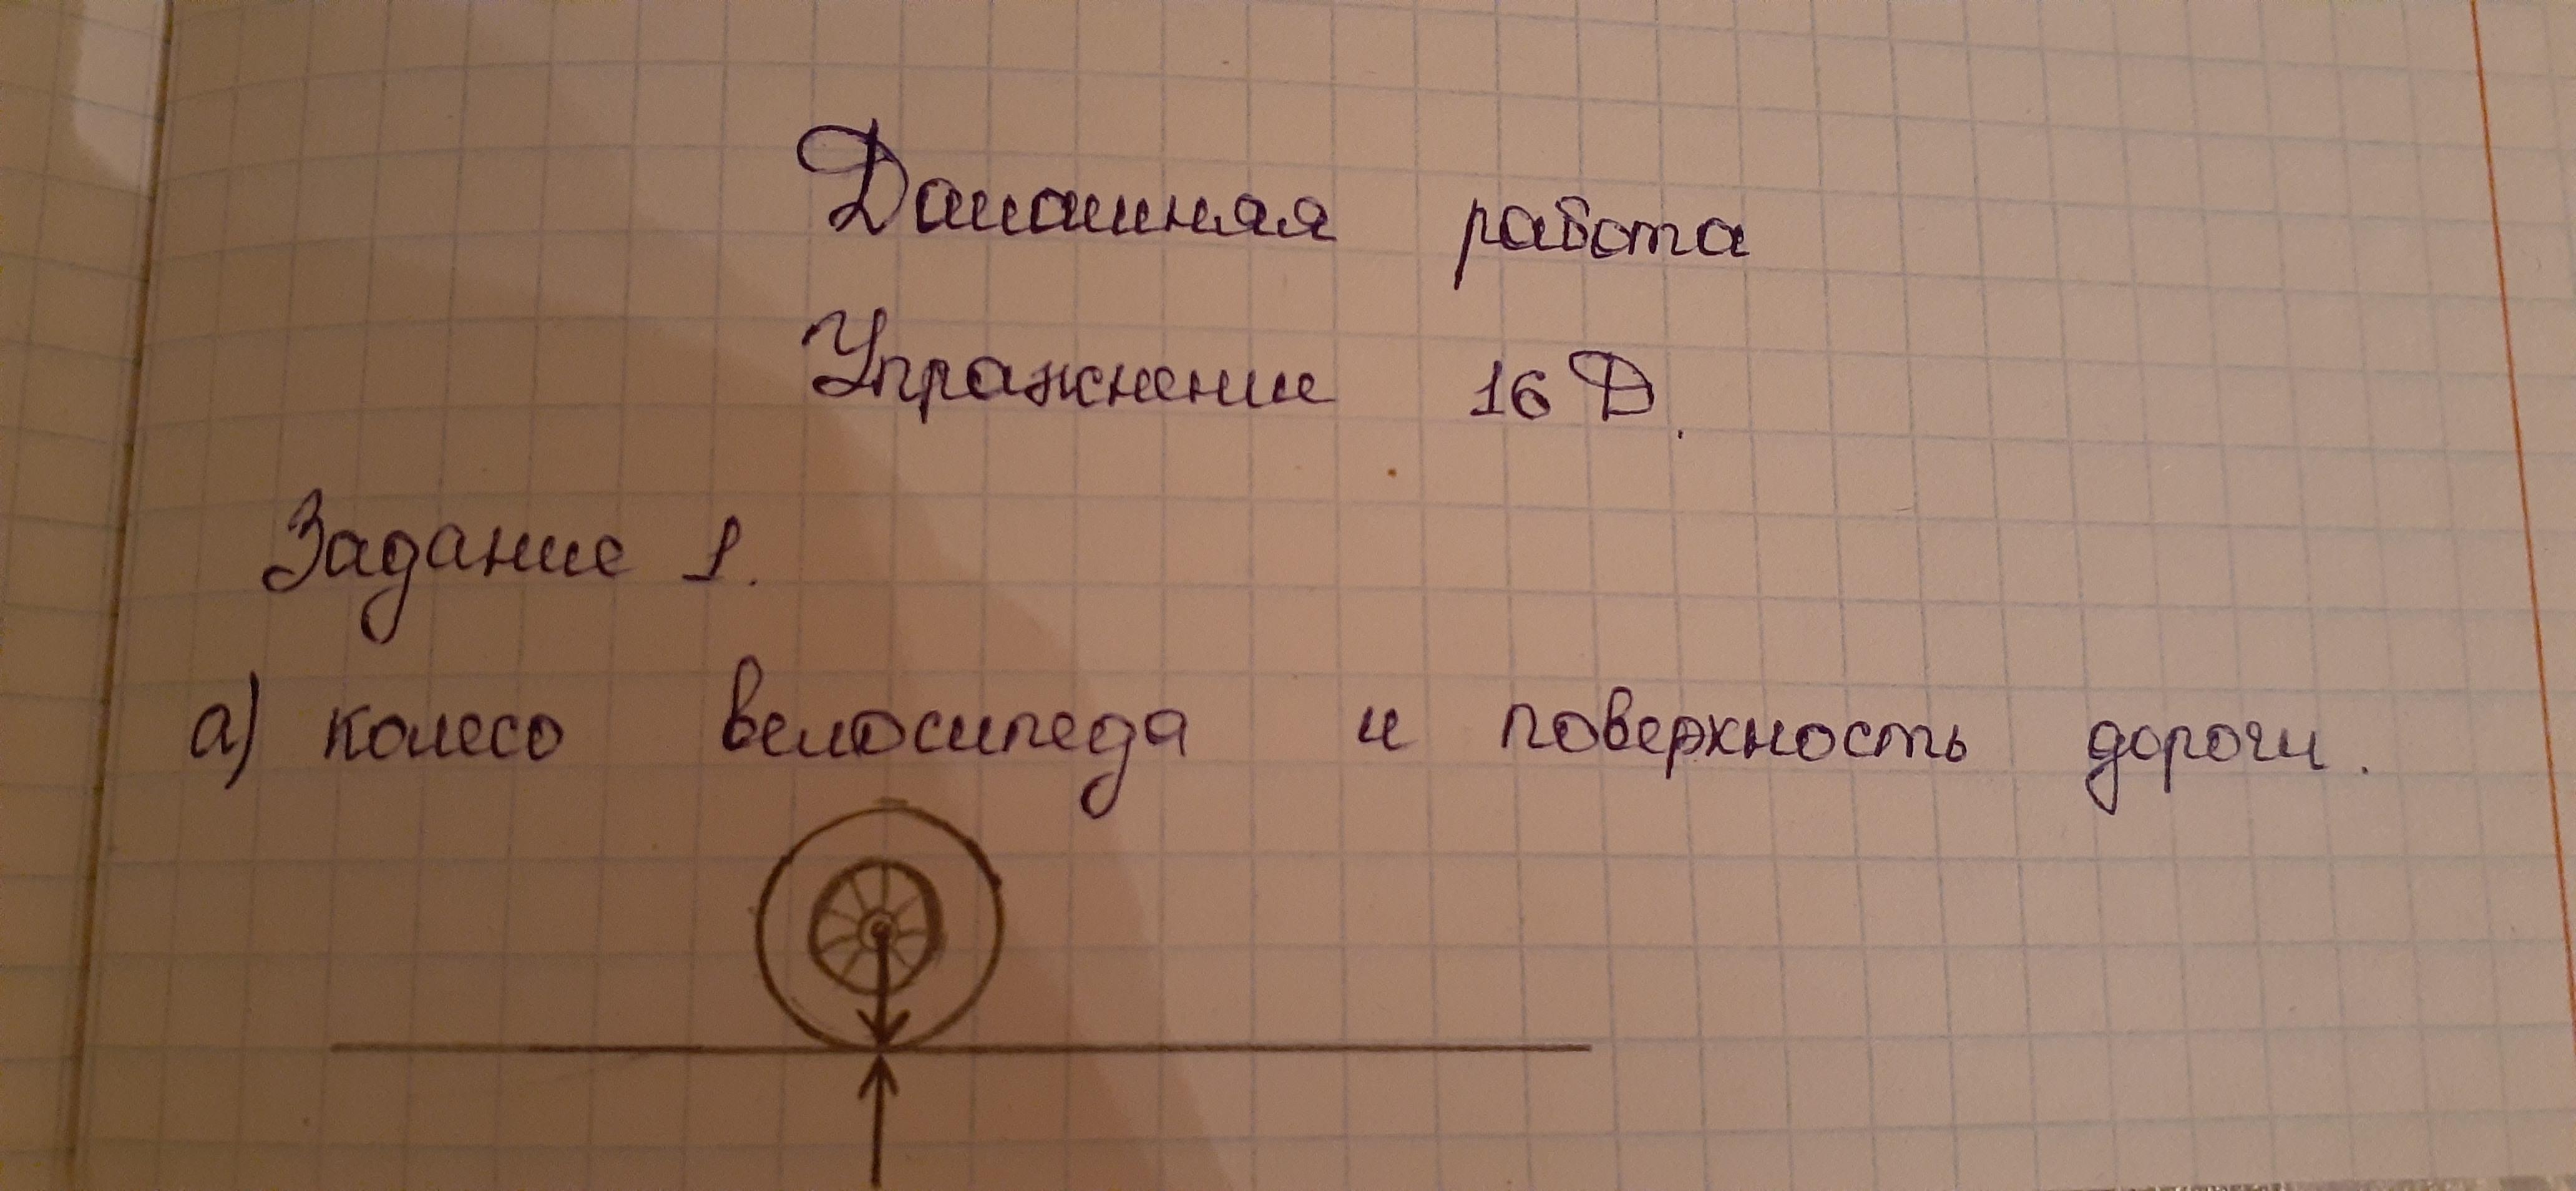 Домашняя работа
Упражнение 16 Д.
Задание 1.
а) колесо велосипеда и поверхность дороги.